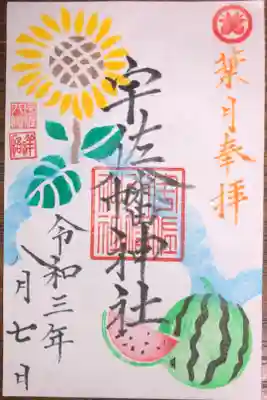 葉月奉拝
宇佐八幡神社
令和三年
八月七日